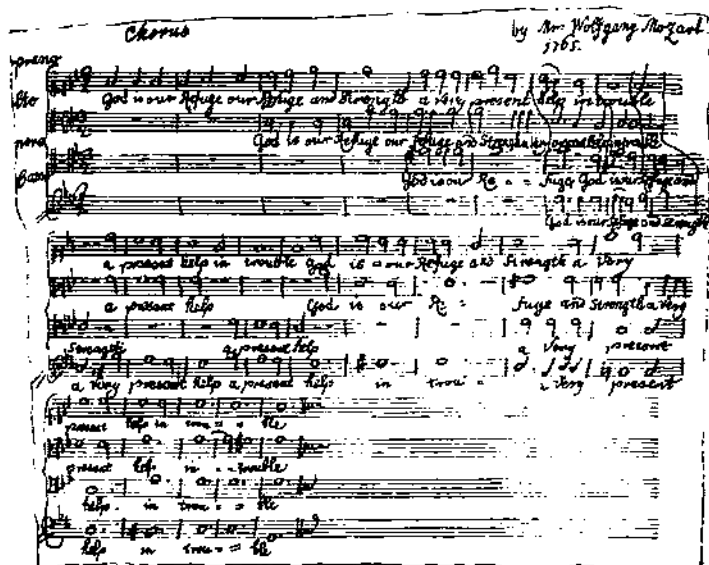 Chorus
by Mr. Wolfgang Mozart
1765.
God is our Refuge our Refuge and Strength a very present help in trouble
God is our Refuge our Refuge and Strength
God is our Re - - fuge God is our
God is our
a present help in trouble God is our Refuge and Strength a Very
a present help God is our Re - fuge and Strength a Very
Strength a present help a Very present
a Very present help a present help in trou - - a Very present
present help in trou - - ble
present help in - - trouble
help. in trou - - ble
help in trou - - ble